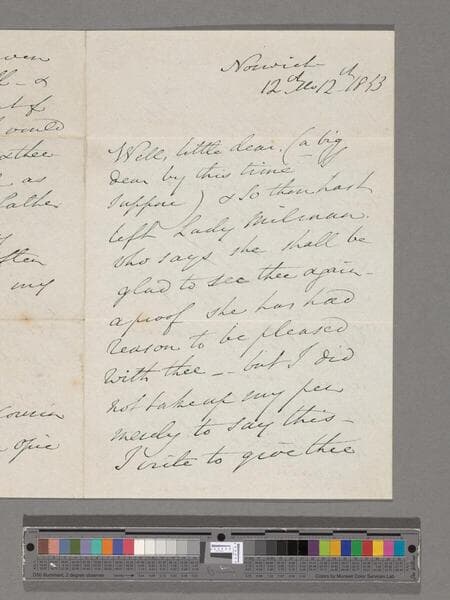 ll - &
t of
would
& thee
as
father
often
my
Cousin
Opie
Norwich
12th Mo 12th 1843
Well, little dear, (a big
dear by this time I
suppose) & so thou hast
left Lady Milman.
who says she shall be
glad to see thee again -
a proof she has had
reason to be pleased
with thee -- but I did
not take up my pen
merely to say this -
I write to give thee
DSC Illuminant, 2 degree observer
Colors by Munsell Color Services Lab